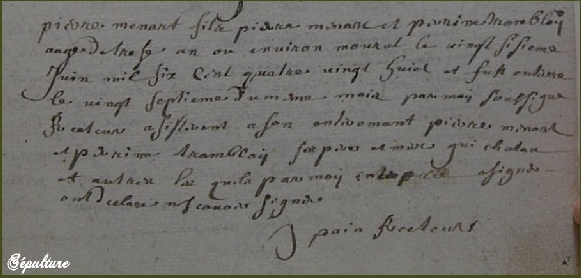 pierre menant fils pierre menant et perrine tramblaÿ
aage de trese an ou environ mourut le vingt sisieme
Juin mil six Cent quatre vingt huict et fust enterre
le vingt septieme du meme mois par moÿ soussigne
Recteur asisterent a son enteromant pierre menant
et perrine tramblaÿ ses pere et mere qui
et autres les quels par moÿ de signer
ont declare ne scavoir signer
J pain Recteur
Sépulture